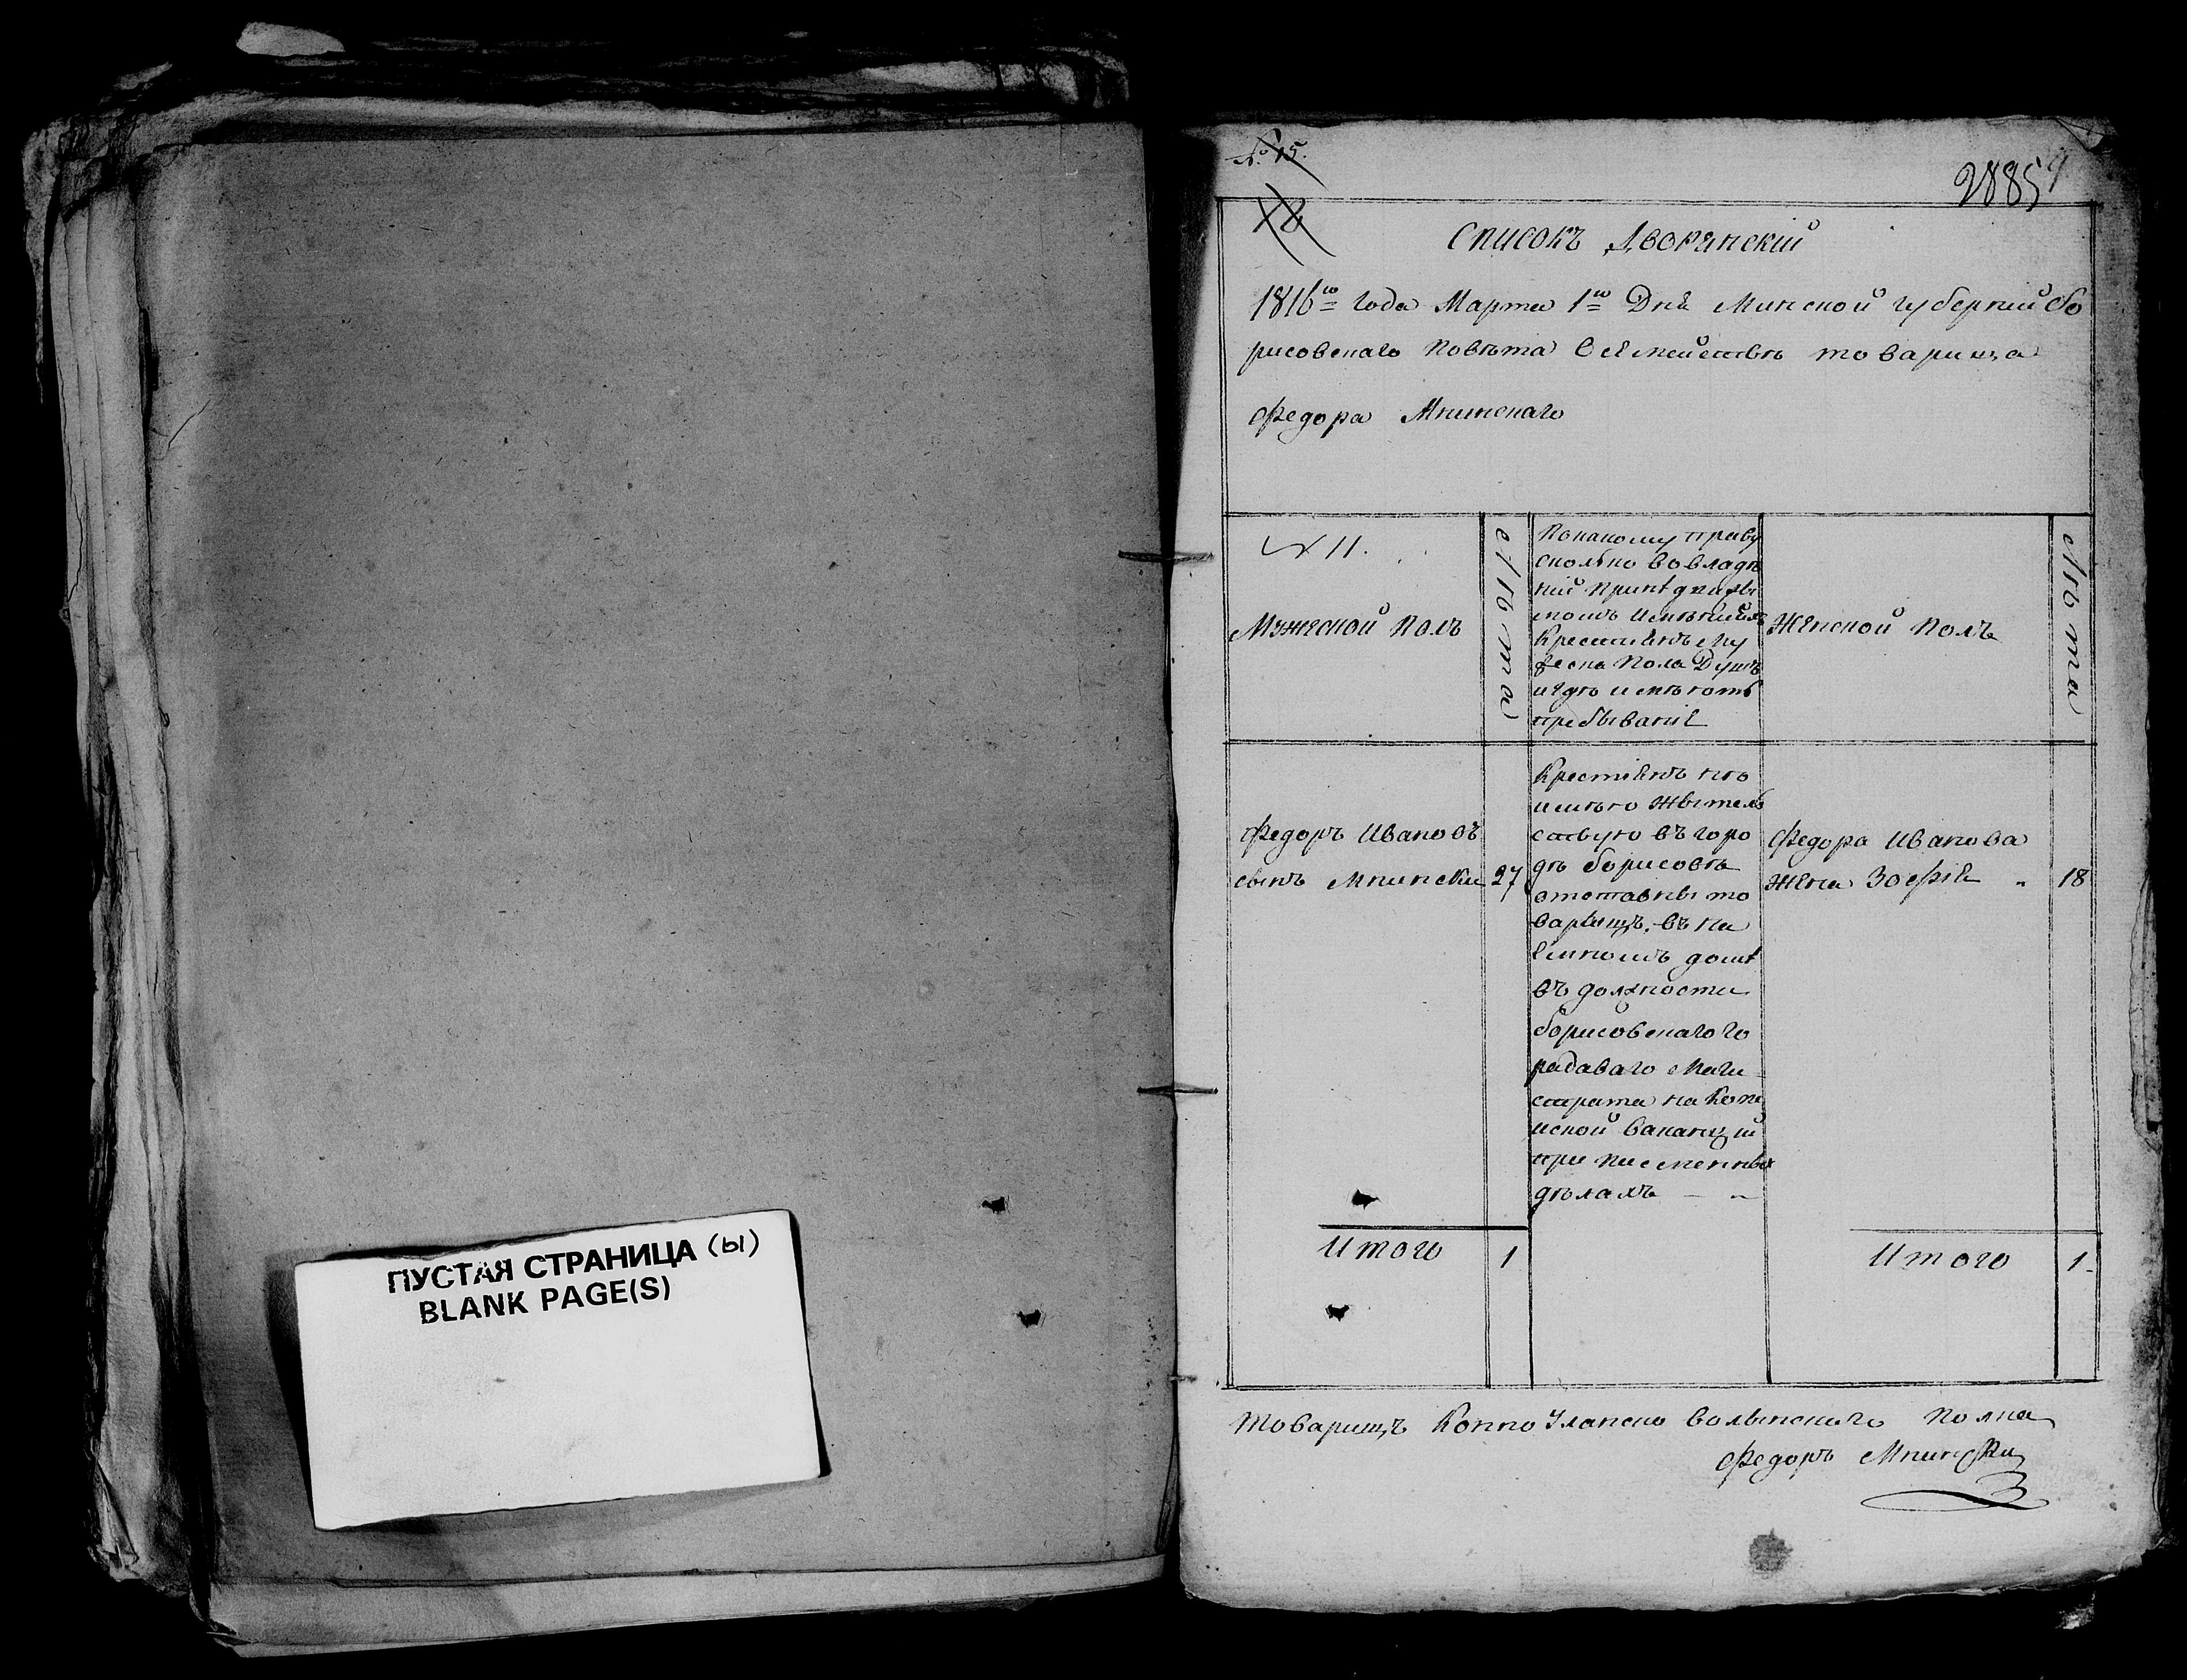 ПУСТАЯ СТРАНИЦА (ы)
BLANK PAGE(S)
№ 15.
2885
Списокъ Дворянскій
1816го года Марта 1го Дня Минской губерніи бо
рисовскаго повѣта О семействѣ товарища
Федора Мнинскаго
№ 11.
Мужеской Полъ
Лѣта
Покакому праву
сколько во владѣ
ніи
имѣніи
Крестьянъ Му
жеска Пола Душъ
и гдѣ имѣютъ
пребываніе
Женской Полъ
Лѣта
Федоръ Ивановъ
сынъ Мнински
27
Крестьянъ не
имѣю жытель
ствую въ горо
дѣ борисовѣ
отставны то
варищъ, въ на
емномъ доме
въ должности
борисовскаго го
радаваго Маги
страта на Копе
иской ваканціи
при писменныхъ
дѣлахъ — „
Федора Иванова
жена Зофія „
18
Итого
1
Итого
1
товарищъ Конно Уланско волынскаго полка
Федоръ Мнински